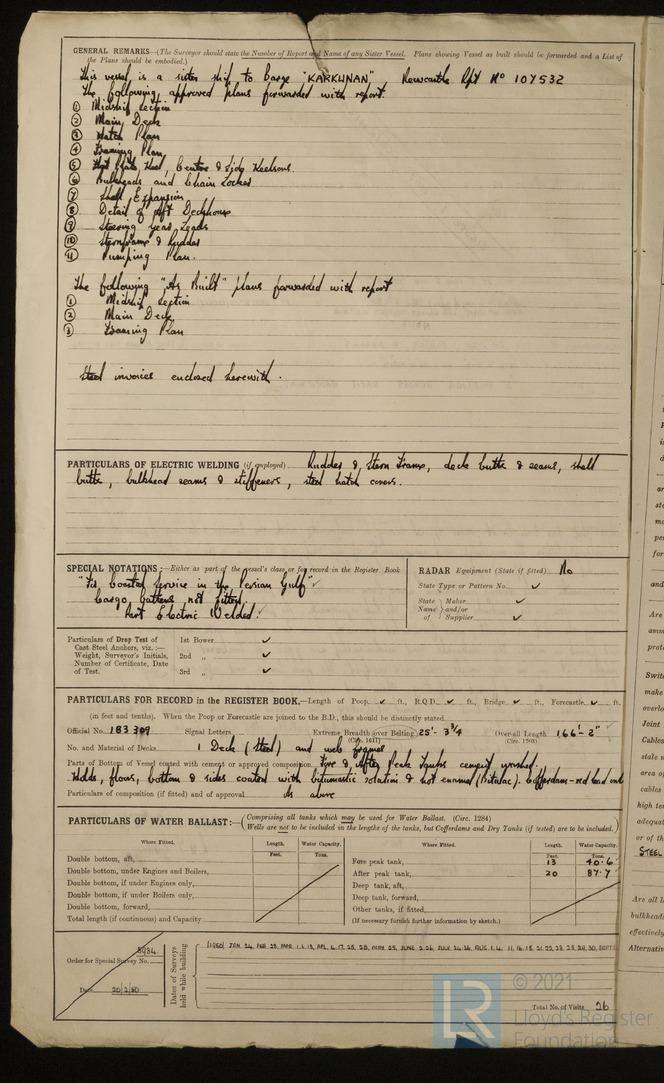 GENERAL REMARKS—(The Surveyor should state the Number of Report and Name of any Sister Vessel. Plans showing Vessel as built should be forwarded and a List of
the Plans should be embodied.)
This vessel is a sister ship to barge "KARKUNAN" Newcastle Rpt No 107532
The following approved plans forwarded with report.
① Midship Section
② Main Deck
③ Hatch Plan
④ Framing Plan
⑤ Flat Plate Keel, Centre & Side Keelsons.
⑥ Bulkheads and Chain Locker
⑦ Shell Expansion
⑧ Detail of Aft Deckhouse
⑨ Steering Gear Leads
⑩ Sternframe & Rudder
⑪ Pumping Plan.
The following "As Built" plans forwarded with report
① Midship Section
② Main Deck
③ Framing Plan
Steel invoices enclosed herewith.
PARTICULARS OF ELECTRIC WELDING (if employed) Rudder & Stern Frame, deck butts & seams, shell
butts, bulkhead seams & stiffeners, steel hatch covers.
SPECIAL NOTATIONS:—Either as part of the vessel's class or for record in the Register Book
"For Coastal Service in the Persian Gulf" ✓
Cargo battens not fitted
Part Electric Welded. ✓
RADAR Equipment (State if fitted) No
State Type or Pattern No. ✓
State Name of Maker and/or Supplier ✓ ✓
Particulars of Drop Test of Cast Steel Anchors, viz.:— Weight, Surveyor's Initials, Number of Certificate, Date of Test.
1st Bower ✓
2nd " ✓
3rd " ✓
PARTICULARS FOR RECORD in the REGISTER BOOK.—Length of Poop ✓ ft., R.Q.D. ✓ ft., Bridge ✓ ft., Forecastle ✓ ft.
(in feet and tenths). When the Poop or Forecastle are joined to the B.D., this should be distinctly stated.
Official No. 183309 Signal Letters Extreme Breadth over Belting 25'- 3¾ Over-all Length 166'- 2" ✓
(Cir. 1611) (Circ. 1703)
No. and Material of Decks 1 Deck (Steel) and web frames
Parts of Bottom of Vessel coated with cement or approved composition Fore & After Peak Tanks cement washed.
Holds, floors, bottom & sides coated with bitumastic solution & hot enamel (Bitulac). Cofferdams-red lead
Particulars of composition (if fitted) and of approval As above
PARTICULARS OF WATER BALLAST:—(Comprising all tanks which may be used for Water Ballast. (Circ. 1284)
Wells are not to be included in the lengths of the tanks, but Cofferdams and Dry Tanks (if tested) are to be included.)
Where Fitted. Length. Water Capacity. Where Fitted. Length. Water Capacity.
Feet. Tons. Feet. Tons.
Double bottom, aft, Fore peak tank, 13 40.6
Double bottom, under Engines and Boilers, After peak tank, 20 87.7
Double bottom, if under Engines only, Deep tank, aft,
Double bottom, if under Boilers only, Deep tank, forward,
Double bottom, forward, Other tanks, if fitted,
Total length (if continuous) and Capacity (If necessary furnish further information by sketch.)
Order for Special Survey No. 5934
Date 20/2/50
Dates of Surveys held while building
Total No. of Visits 26
© 2021
Lloyd's Register
Foundation
STEEL